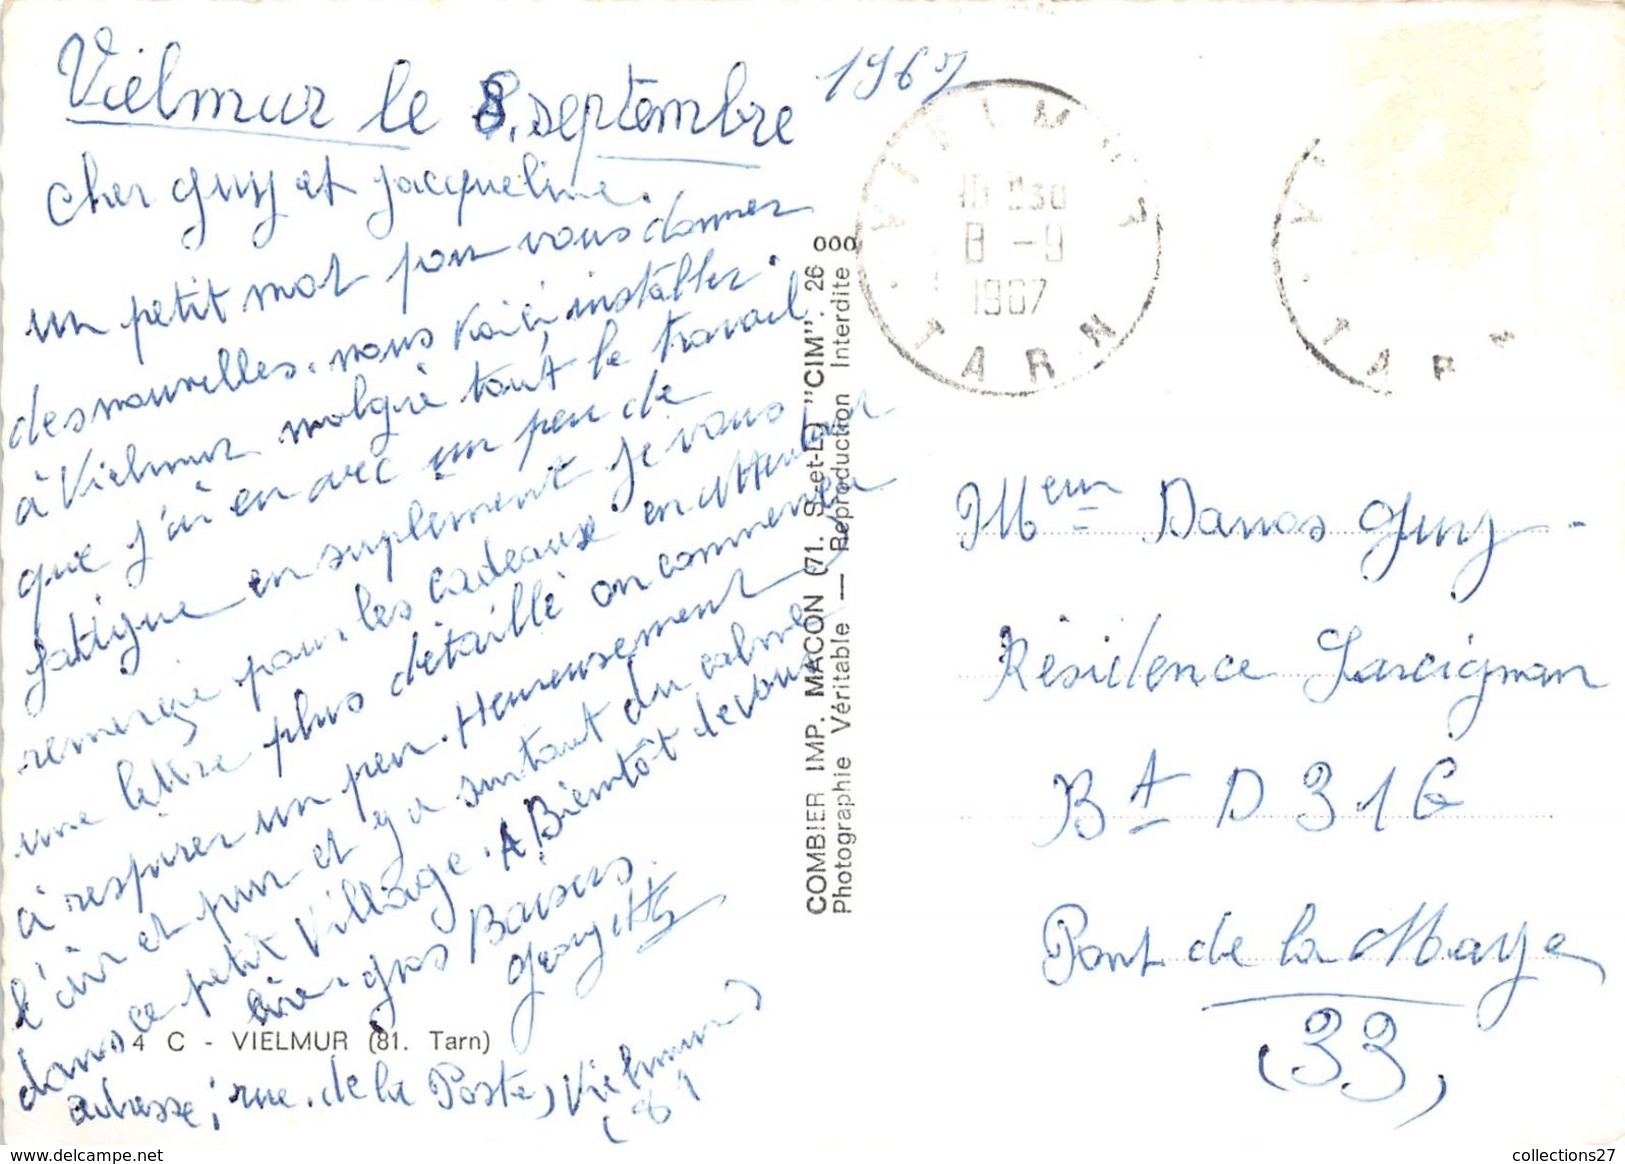 Vielmur le 8. septembre 1967
Cher Guy et Jacqueline.
un petit mot pour vous donner
des nouvelles. nous voici installer
à Vielmur malgré tout le travail
que j'ai en avec un peu de
fatigue en suplement je vous
remerçie pour les cadeaux en attendant
une lettre plus détaillé on commence
à respirer un peu. Heureusement
l'air et pur et y a surtout du calme
dans ce petit Village. A Bientôt de vous
lire. gros Baisers.
Georgette
4 C - VIELMUR (81. Tarn)
adresse; rue. de la Poste, Vielmur)
(81
COMBIER IMP. MACON (71. S.-et-L.) "CIM". 26 000
Photographie Véritable — Reproduction Interdite
VIELMUR
8 -9
1967
TARN
TAR
Meur Danos Guy -
Résidence Sarcignan
Bt D 31 G
Pont de la Maye
(33)
collections27
delcampe.net